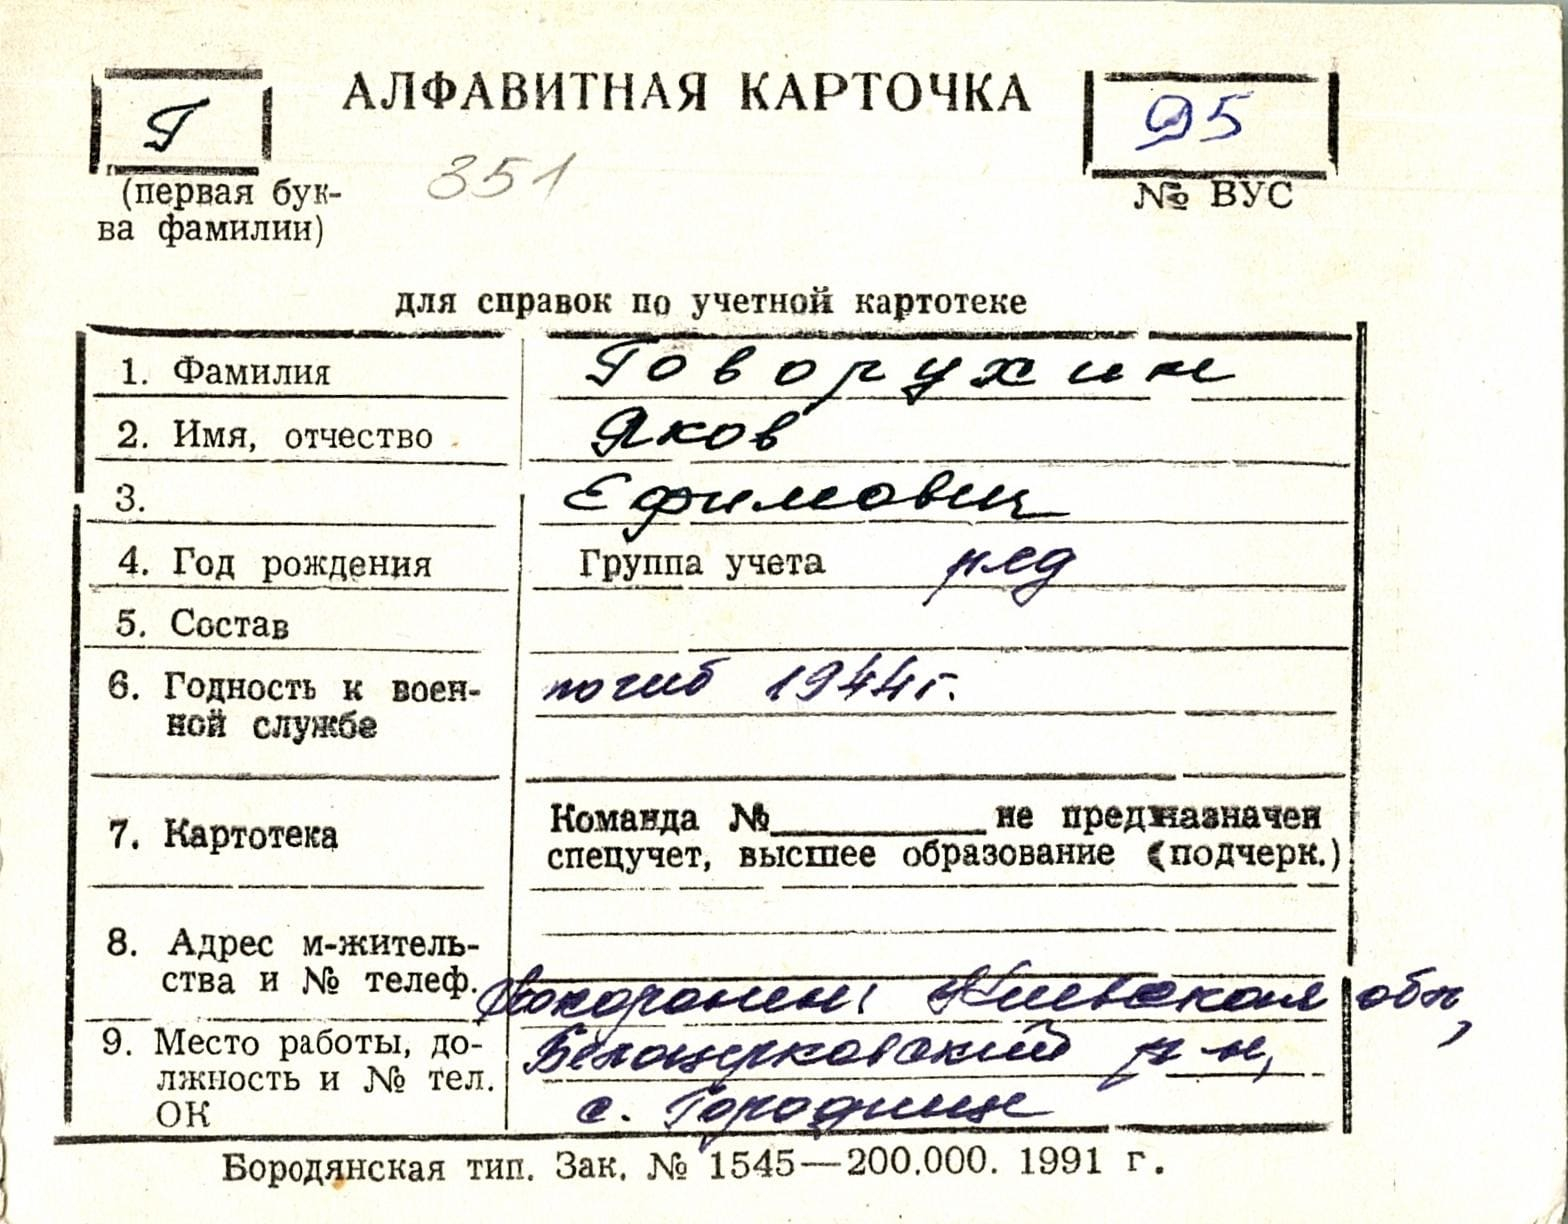 АЛФАВИТНАЯ КАРТОЧКА
Г
95
351
(первая бук-
ва фамилии)
№ ВУС
для справок по учетной картотеке
1. Фамилия Говорухин
2. Имя, отчество Яков
3. Ефимович
4. Год рождения Группа учета ряд
5. Состав
6. Годность к воен- погиб 1944г.
ной службе
7. Картотека Команда №__________не предназначен
спецучет, высшее образование (подчерк.)
8. Адрес м-житель-
ства и № телеф. Похоронен: Киевская обл,
9. Место работы, до- Белоцерковский р-н,
лжность и № тел.
ОК с. Городище
Бородянская тип. Зак. № 1545—200.000. 1991 г.